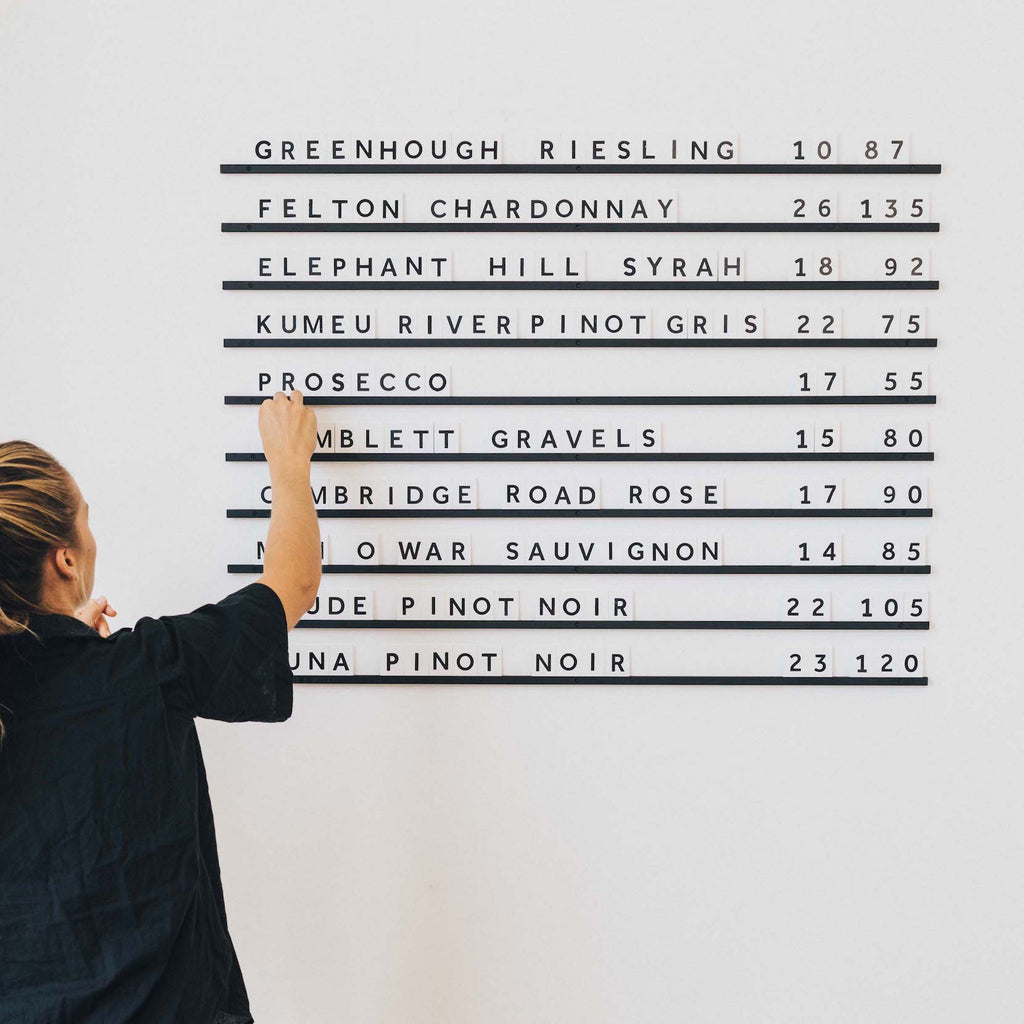 GREENHOUGH RIESLING 10 87
FELTON CHARDONNAY 26 135
ELEPHANT HILL SYRAH 18 92
KUMEU RIVER PINOT GRIS 22 75
PROSECCO 17 55
GRAVELS 15 80
CAMBRIDGE ROAD ROSE 17 90
O WAR SAUVIGNON 14 85
PINOT NOIR 22 105
PINOT NOIR 23 120